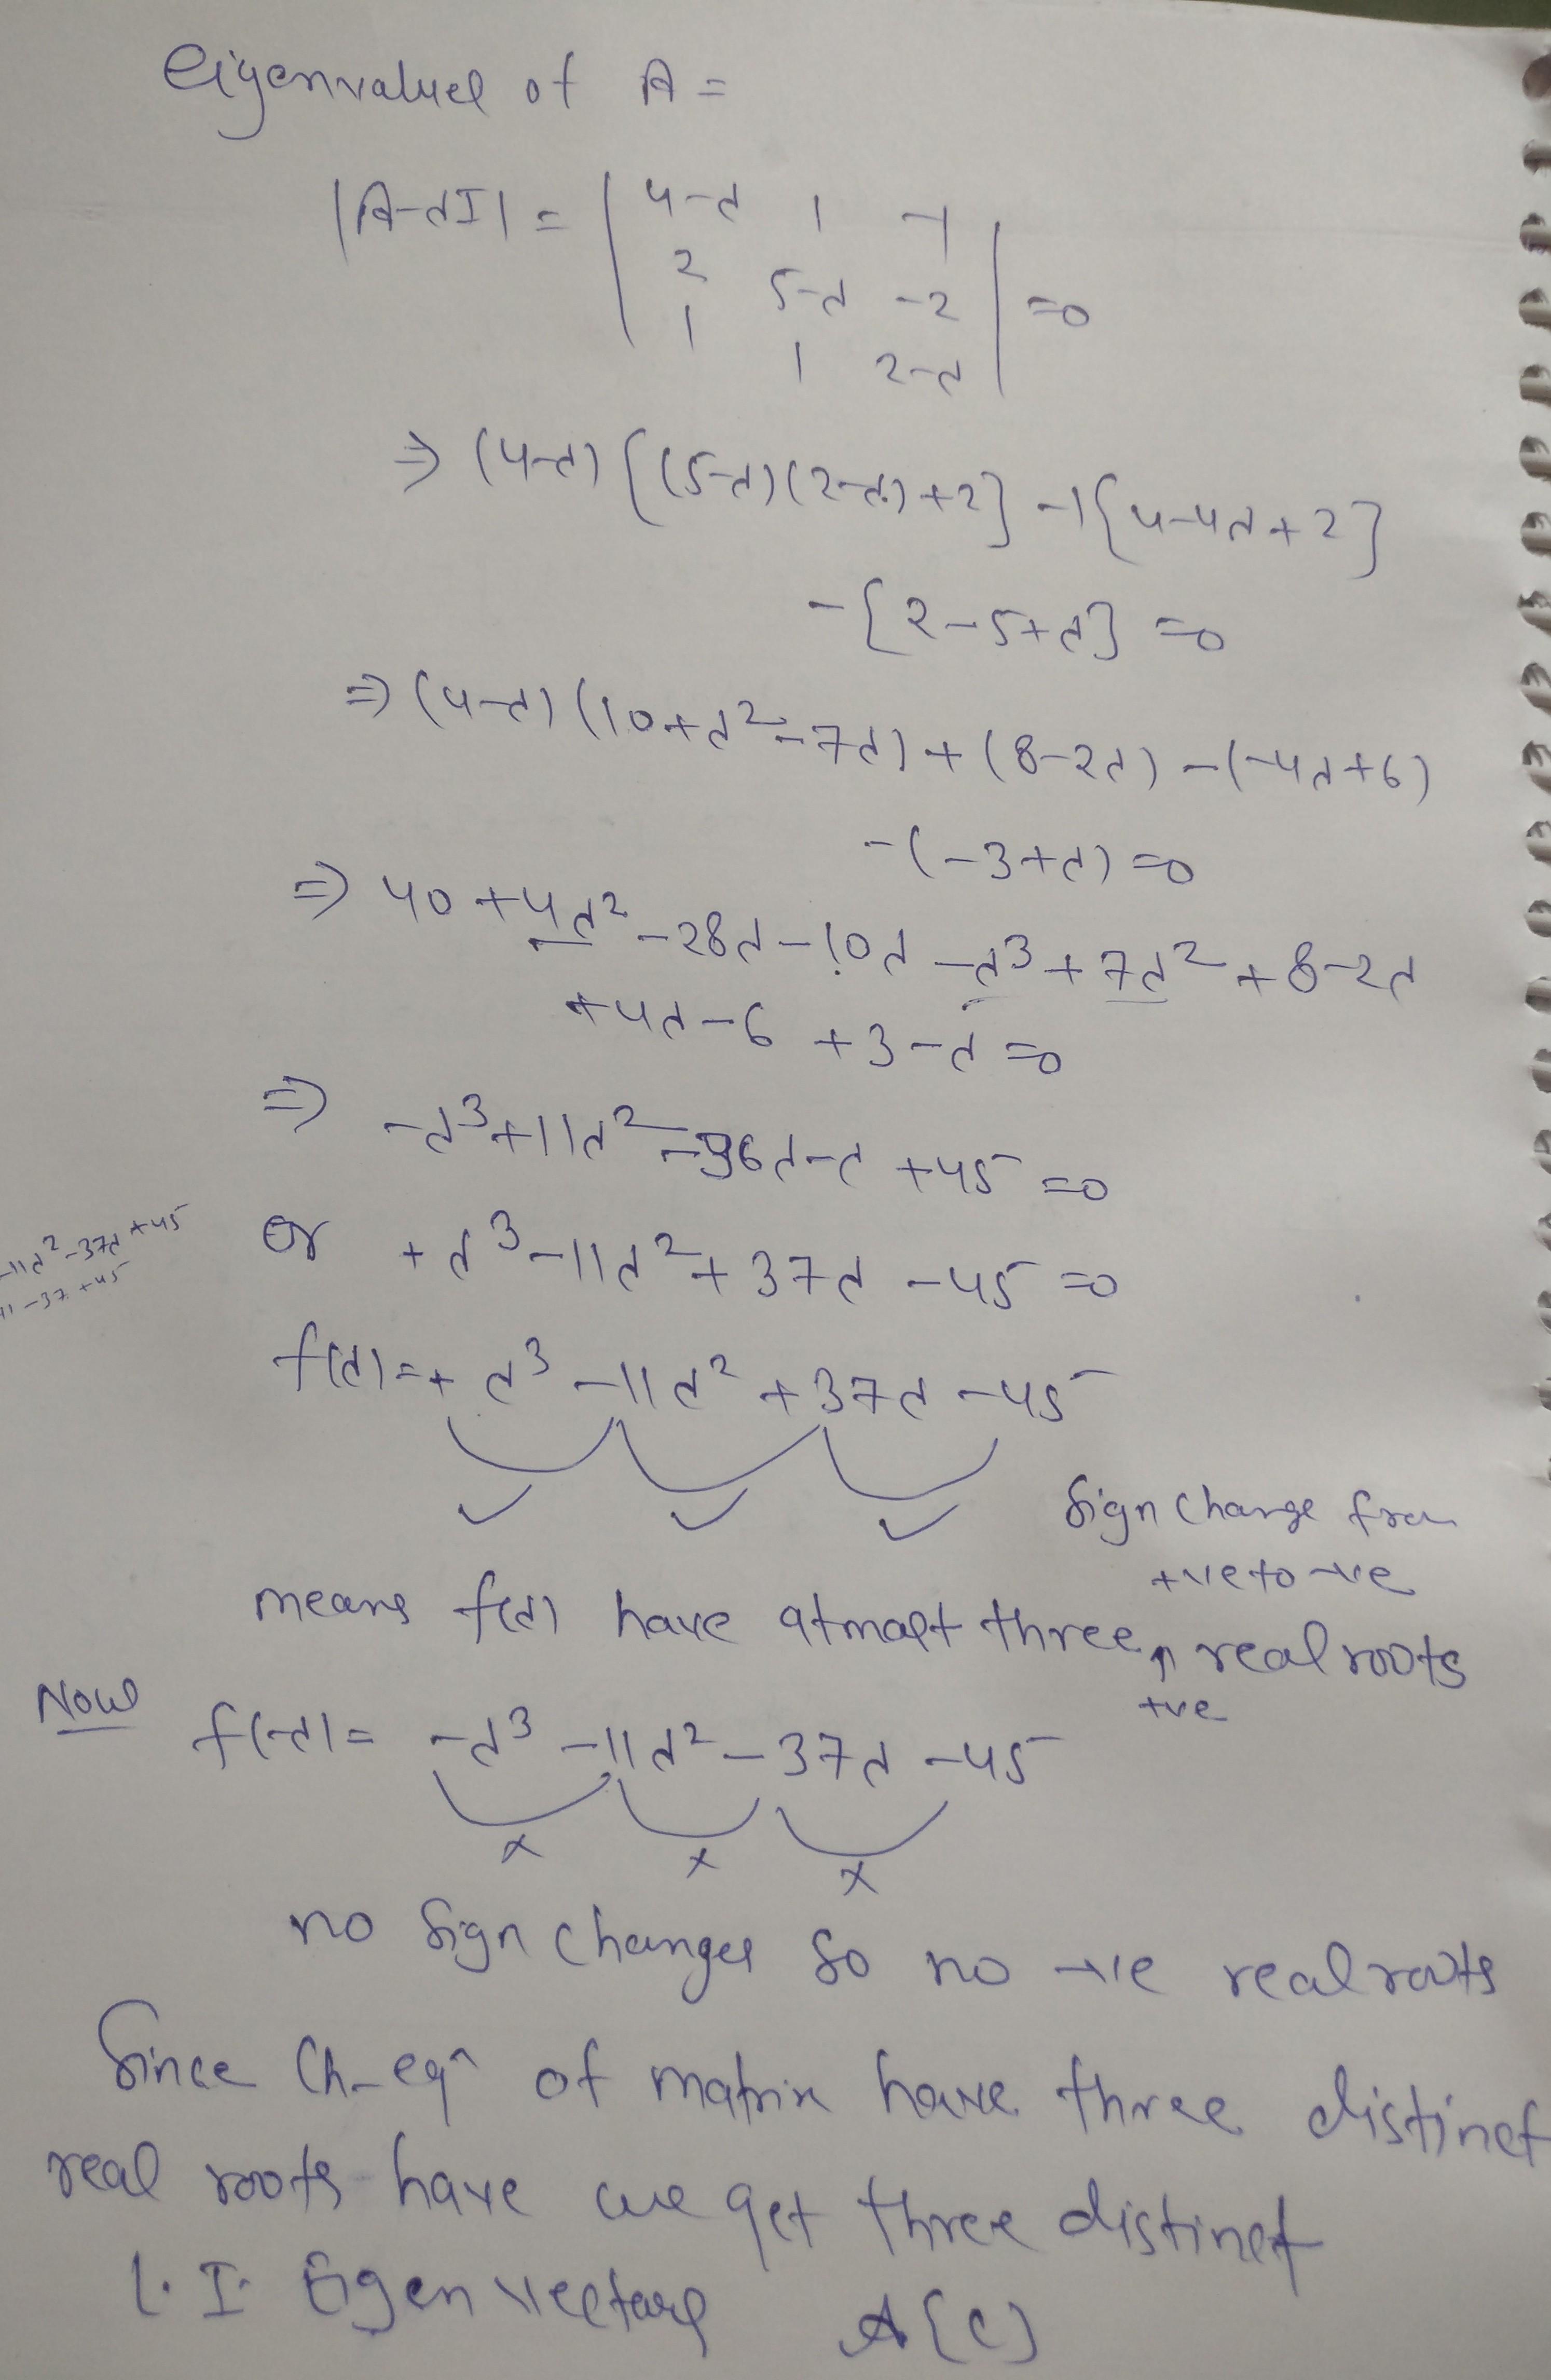 Eigenvalues of A =
|A-λI| = | 4-λ 1 -1
2 5-λ -2 | =0
1 1 2-λ
⇒ (4-λ) {(5-λ)(2-λ)+2} -1{4-4λ+2}
-{2-5+λ} =0
⇒ (4-λ) (10+λ²-7λ) + (8-2λ) -(-4λ+6)
-(-3+λ) =0
⇒ 40 +4λ² -28λ -10λ -λ³ +7λ² +8-2λ
+4λ-6 +3-λ =0
⇒ -λ³+11λ² -36λ-λ +45 =0
-11λ²-37λ+45
11-37+45
or +λ³-11λ²+37λ -45 =0
f(λ)=+ λ³ -11λ² +37λ -45
Sign change from
+ve to -ve
means f(λ) have atmost three +ve real roots
Now f(-λ)= -λ³ -11λ² -37λ -45
x x x
no Sign changes so no -ve real roots
Since Ch-eqⁿ of matrix have three distinct
real roots have we get three distinct
L.I. Eigen vectors A(C)